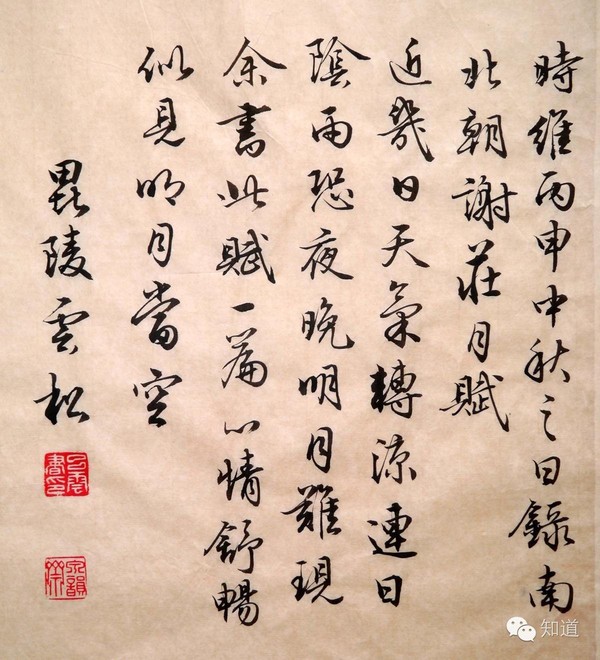 時維丙申中秋之日錄南
北朝謝莊月賦
近幾日天氣轉涼連日
陰雨恐夜晚明月難現
余書此賦一篇心情舒暢
似見明月當空
毘陵雲松
知道